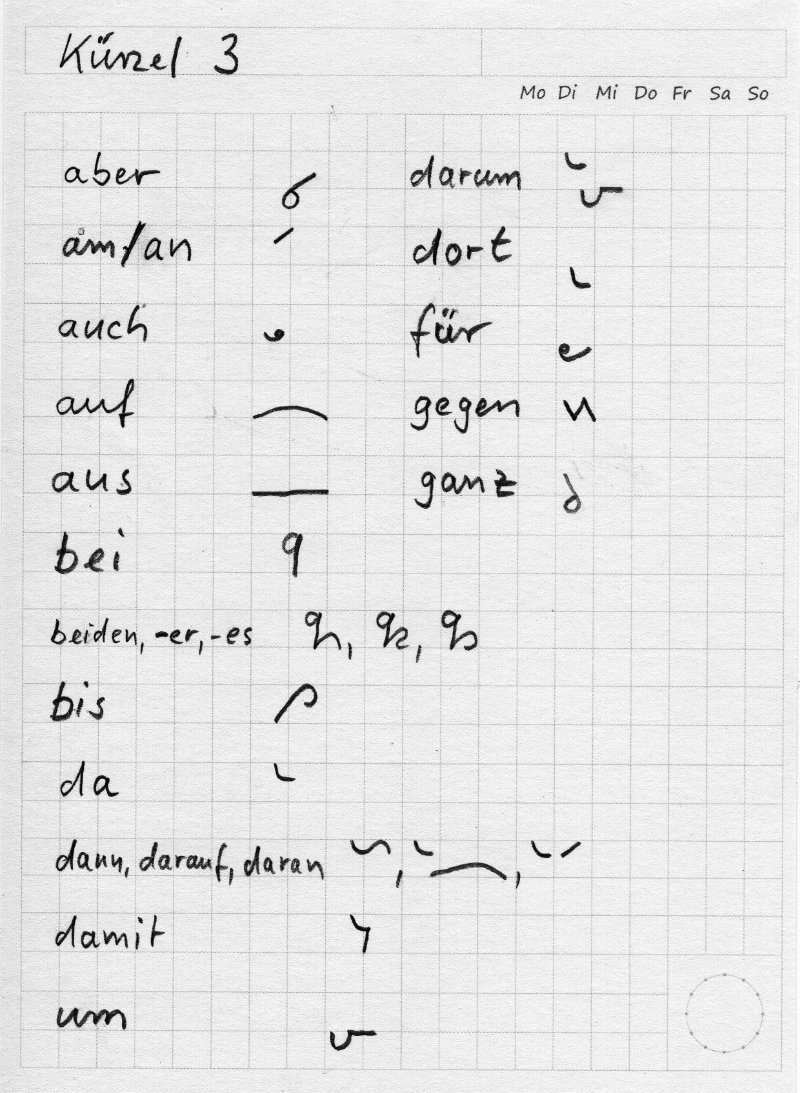 Kürzel 3
Mo Di Mi Do Fr Sa So
aber
am/an
auch
auf
aus
bei
beiden, -er, -es
bis
da
dann, darauf, daran
damit
um
darum
dort
für
gegen
ganz